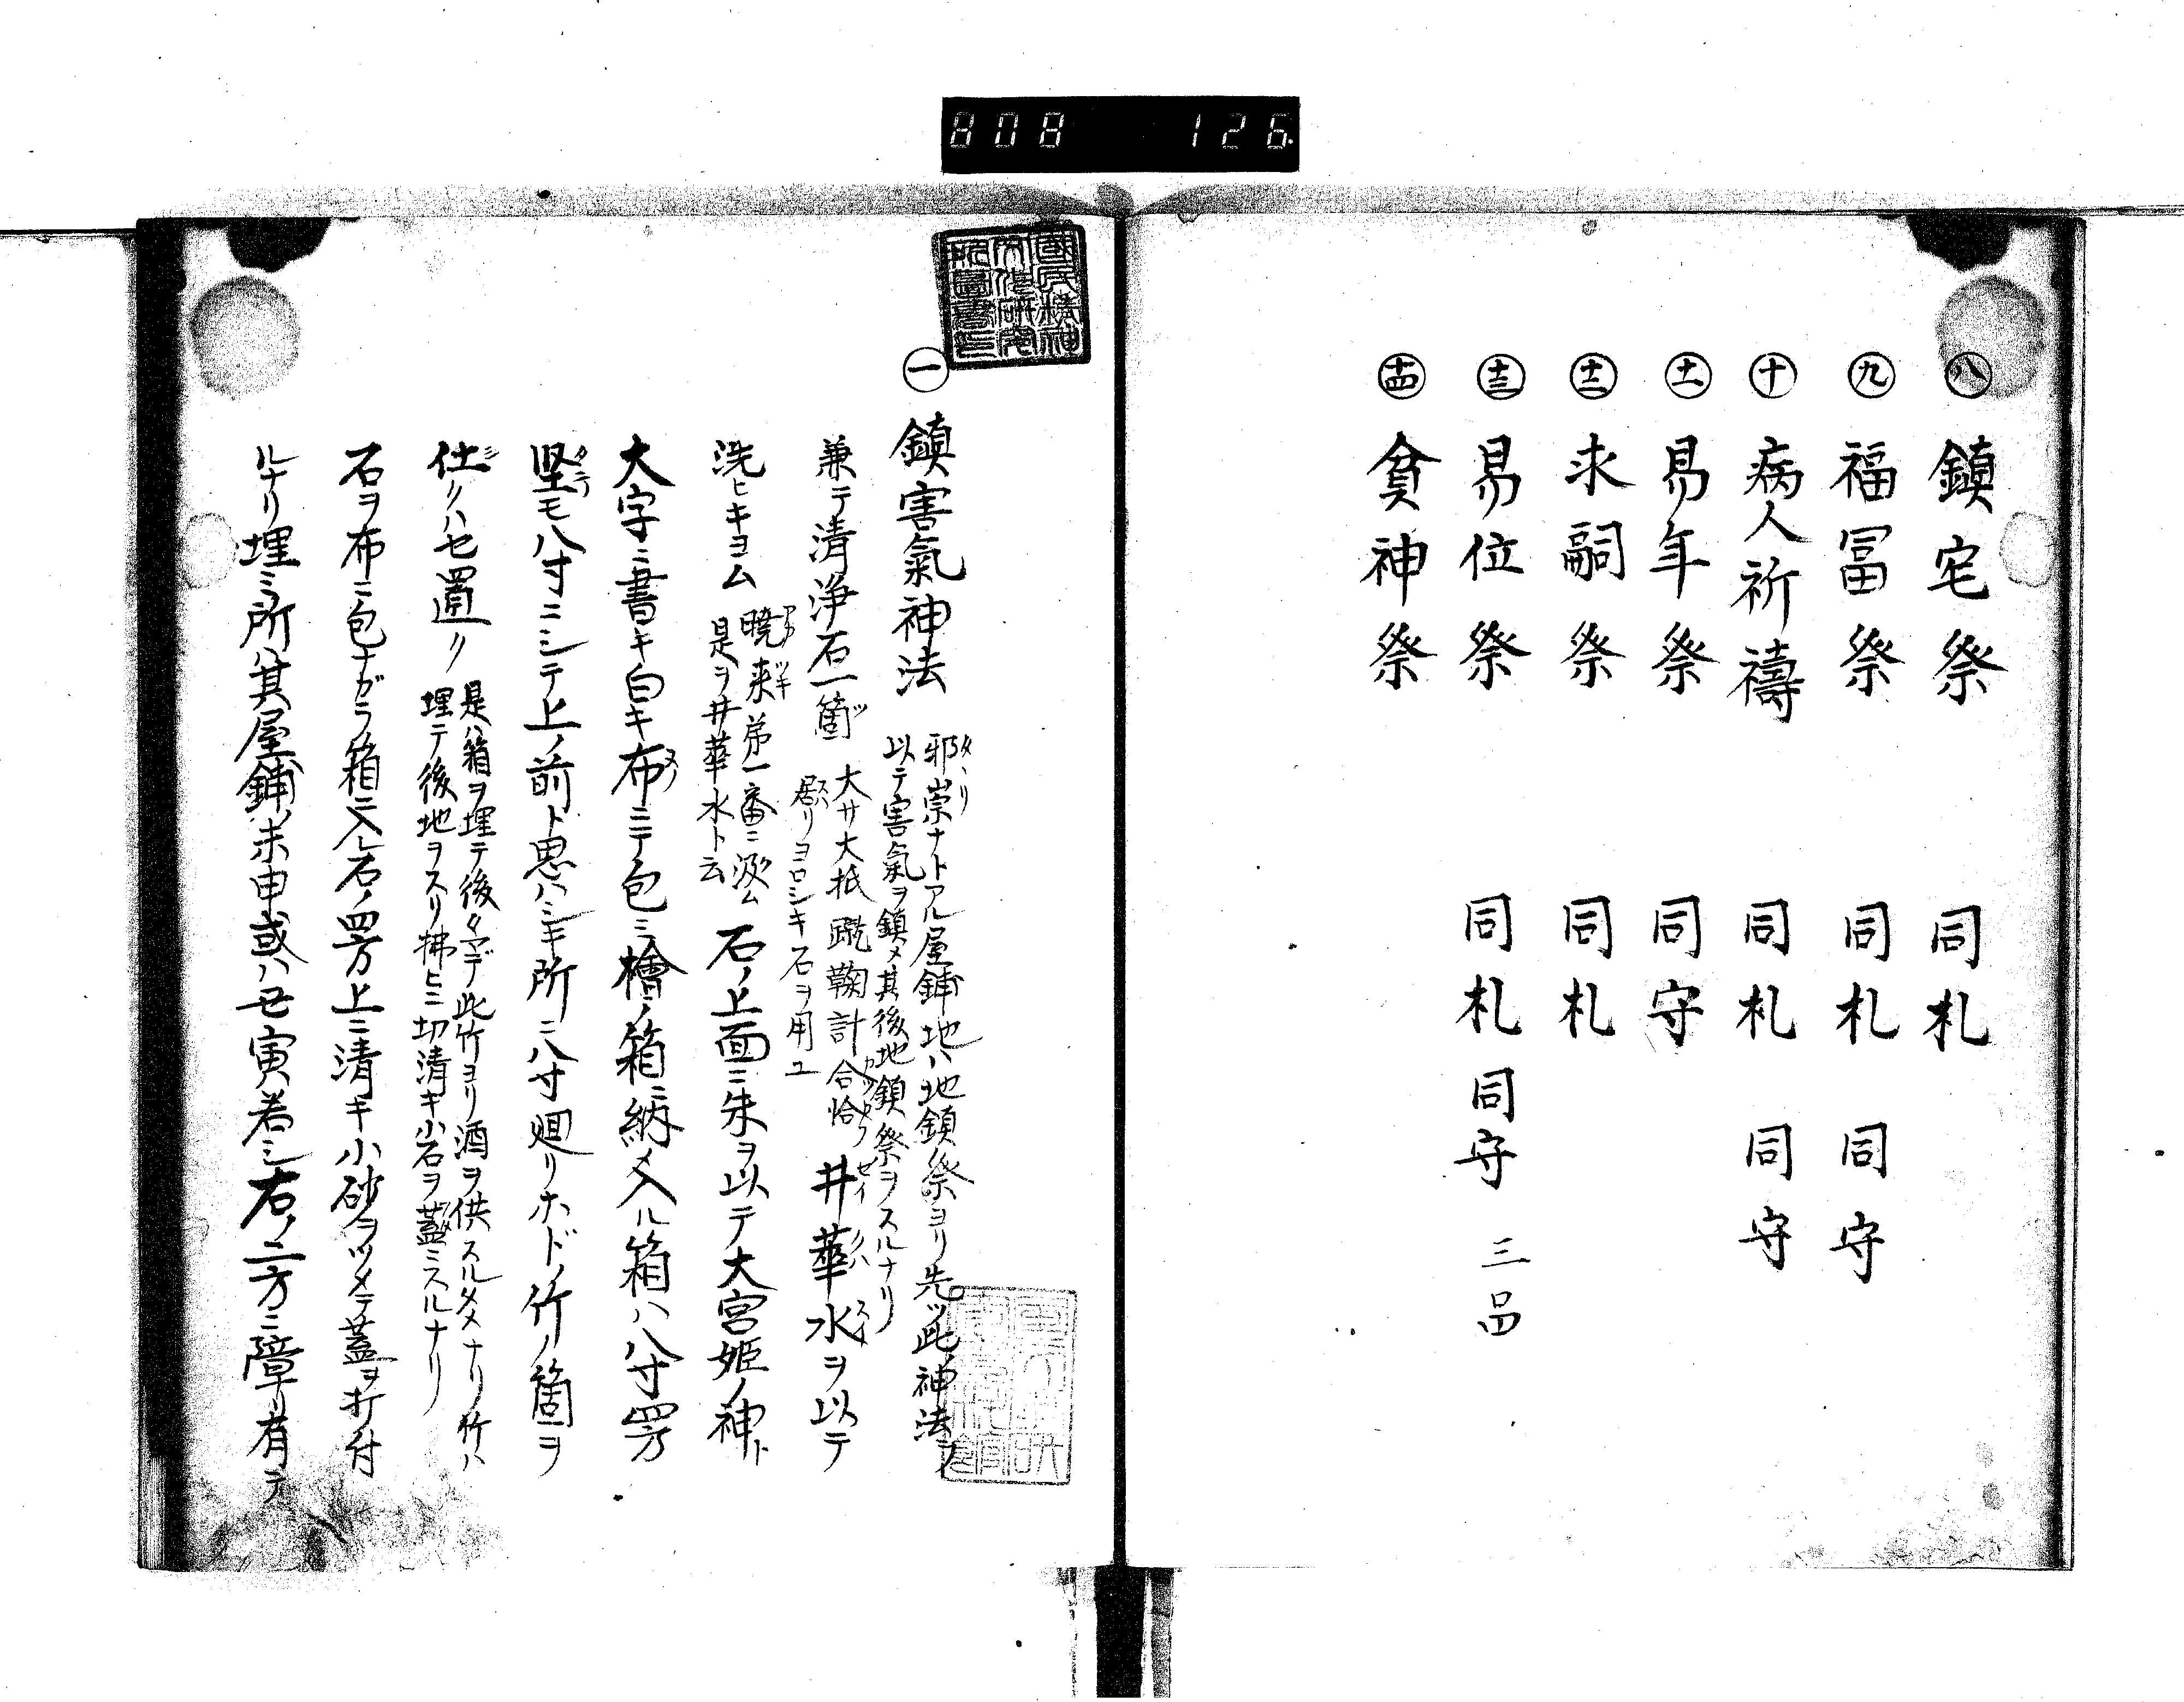 808 126
㈧ 鎮宅祭 同札
㈨ 福冨祭 同札 同守
㈩ 病人祈禱 同札 同守
十一 易年祭 同守
十二 求嗣祭 同札
十三 易位祭 同札 同守 三品
十四 貧神祭
國民精神
文化研究
所圖書印
一 鎮害氣神法
邪崇ナトアル屋鋪地ハ地鎮祭ヨリ先ッ此ノ神法ヲ
以テ害氣ヲ鎮メ其後地鎮祭ヲスルナリ
兼テ清浄石一箇
大サ大抵蹴鞠計合恰
居リヨロシキ石ヲ用ユ
井華水ヲ以テ
洗ヒキヨム
暁来第一番ニ汲ム
是ヲ井華水ト云
石ノ上面ニ朱ヲ以テ大宮姫ノ神ト
大字ニ書キ白キ布ニテ包ミ檜ノ箱ニ納メ入ル箱ハ八寸四方
堅モ八寸ニシテ上ノ前ト思ハシキ所ニ八寸廻リホドノ竹ノ箇ヲ
仕ノハセ置ク
是ハ箱ヲ埋テ後タデ此竹ヨリ酒ヲ供スルタメナリ竹ハ
埋テ後地ヲスリ拂ヒニ切清キ小石ヲ蓋ミスルナリ
石ヲ布ニ包ナガラ箱ニ入レ石ノ四方上ニ清キ小砂ヲツメテ蓋ヲ打付
ルナリ埋ミ所ハ其屋鋪ノ未申或ハ丑寅若シ右ノ二方ニ障リ有テ